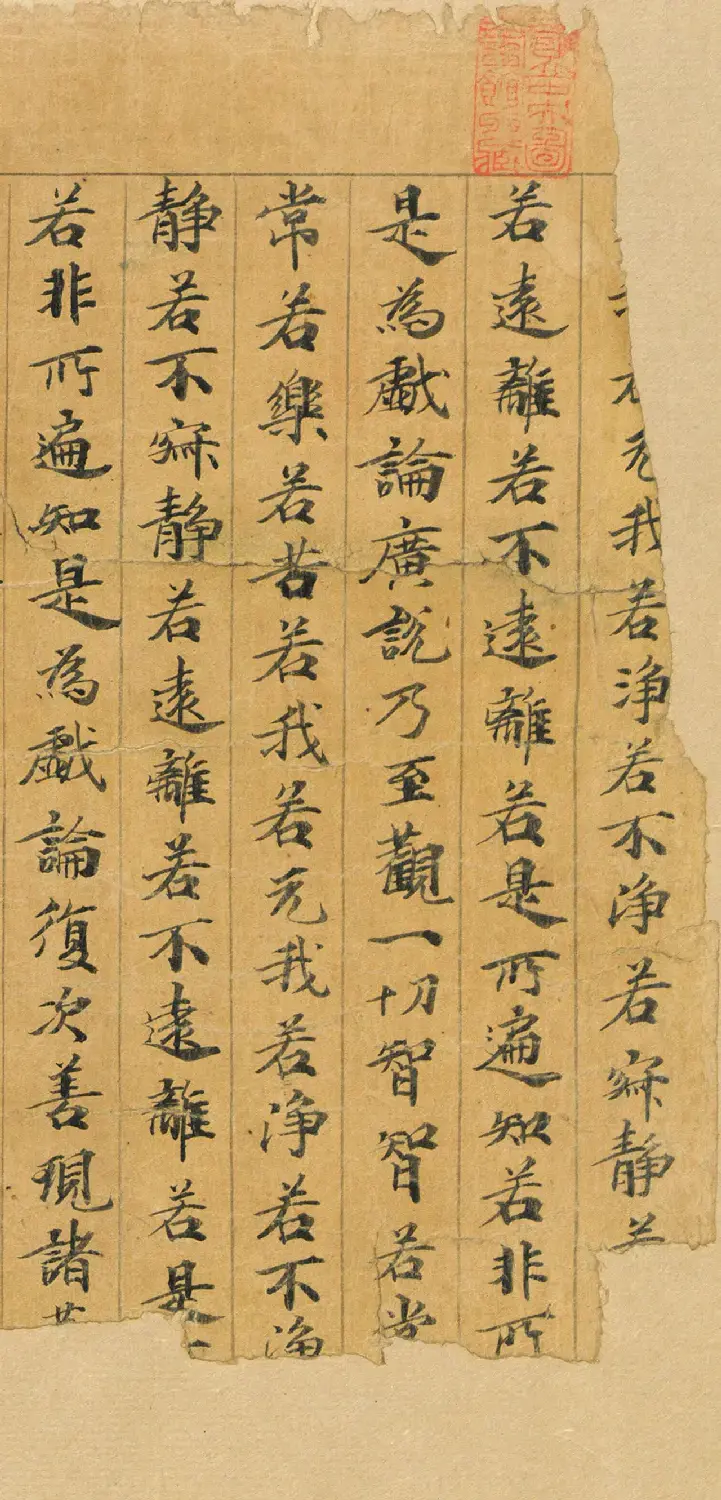 无我若浄若不浄若寂静
若遠離若不遠離若是所遍知若非所
是為戲論廣說乃至觀一切智智若常
常若樂若苦若我若无我若浄若不浄
静若不寂静若遠離若不遠離若是
若非所遍知是為戲論復次善現諸
國立中央圖
書館收藏